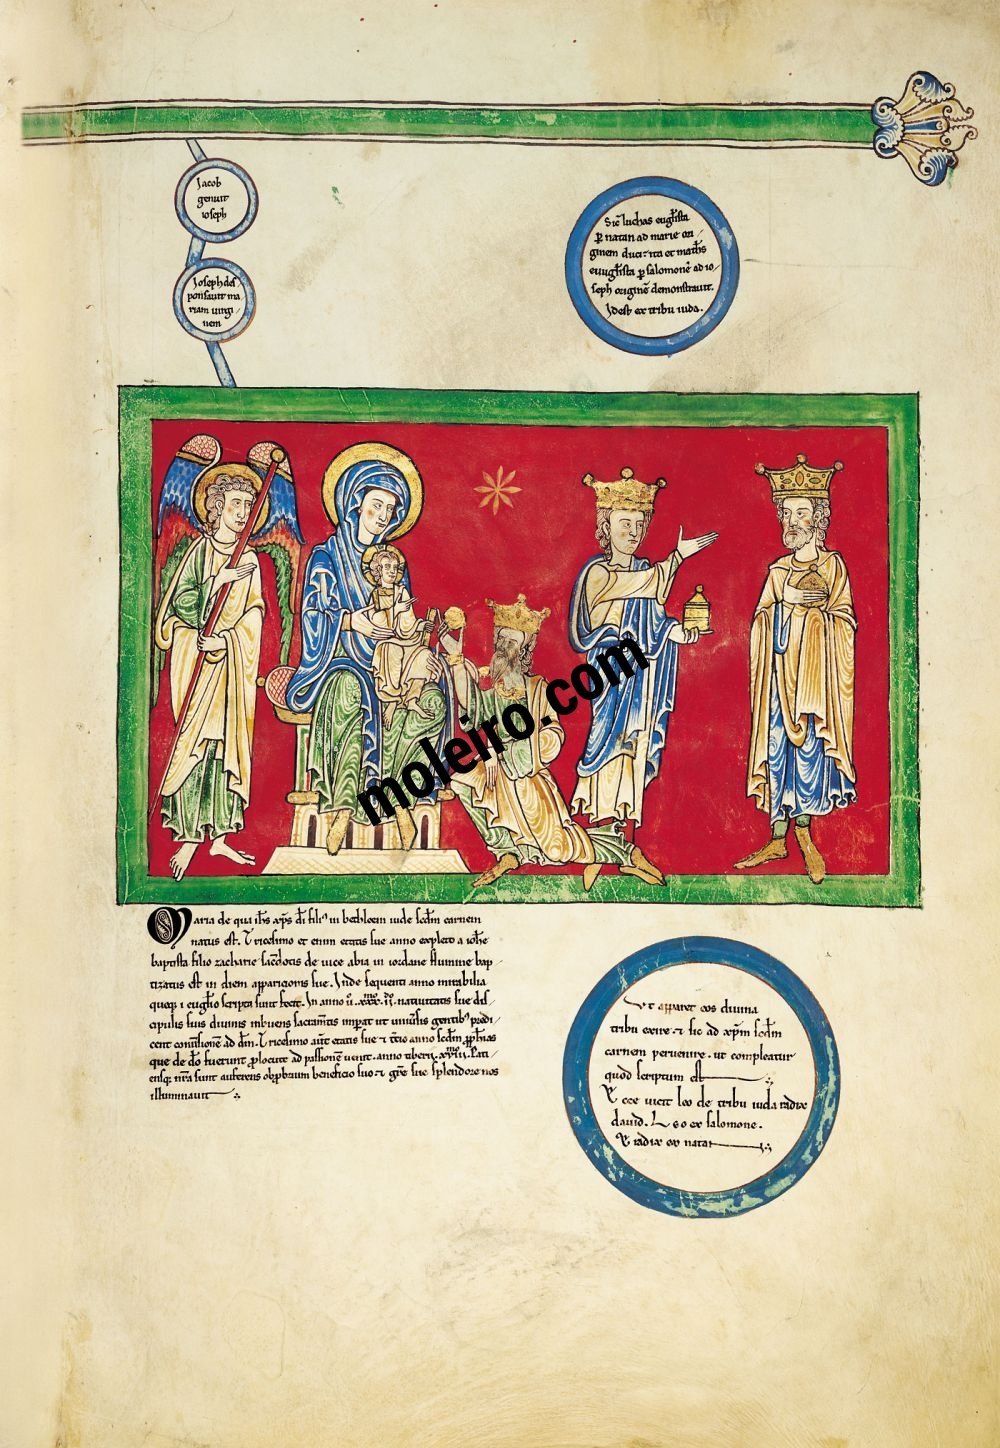 Jacob
genuit
ioseph
Joseph des
ponsauit ma
riam uirgi
nem
Sic̄ luchas eugl̄ista
ꝑ natan ad marie ori
ginem ducit ita et math̄s
euuḡlista ꝑ salomonē ad io
seph originē demonstrauit.
Idest ex tribu iuda.
moleiro.com
Maria de qua ih̄s xp̄s dī filiꝰ in bethleem iude sc̄dm carnem
natus est. Tricesimo et enim etatis sue anno expleto a ioh̄e
baptista filio zacharie sac̄dotis de uice abia in iordane flumine bap
tizatus est in diem apparicionis sue. Inde sequenti anno mirabilia
que in euḡlio scripta sunt fecit. In anno natiuitatis sue dis
cipulis suis diuinis inbuens sacram̄tis imꝑat ut uniūsis gentibꝰ predi
cent conūsionē ad dm̄. Tricesimo aūt etatis sue ⁊ tc̄io anno sc̄dm ꝓph̄ias
que de dō fuerunt ꝓlocute ad passionē uenit. anno tiberii. xviii. Pati
ensq; nr̄a sunt auferens obꝓbrium beneficio suo ⁊ gr̄e sue splendore nos
illuminauit
Ut apparet eos diuina
tribu exire ⁊ sic ad xp̄m sc̄dm
carnem peruenire. ut compleatur
quod scriptum est
Ecce uicit leo de tribu iuda radix
dauid. Leo ex salomone.
Et radix ex natan